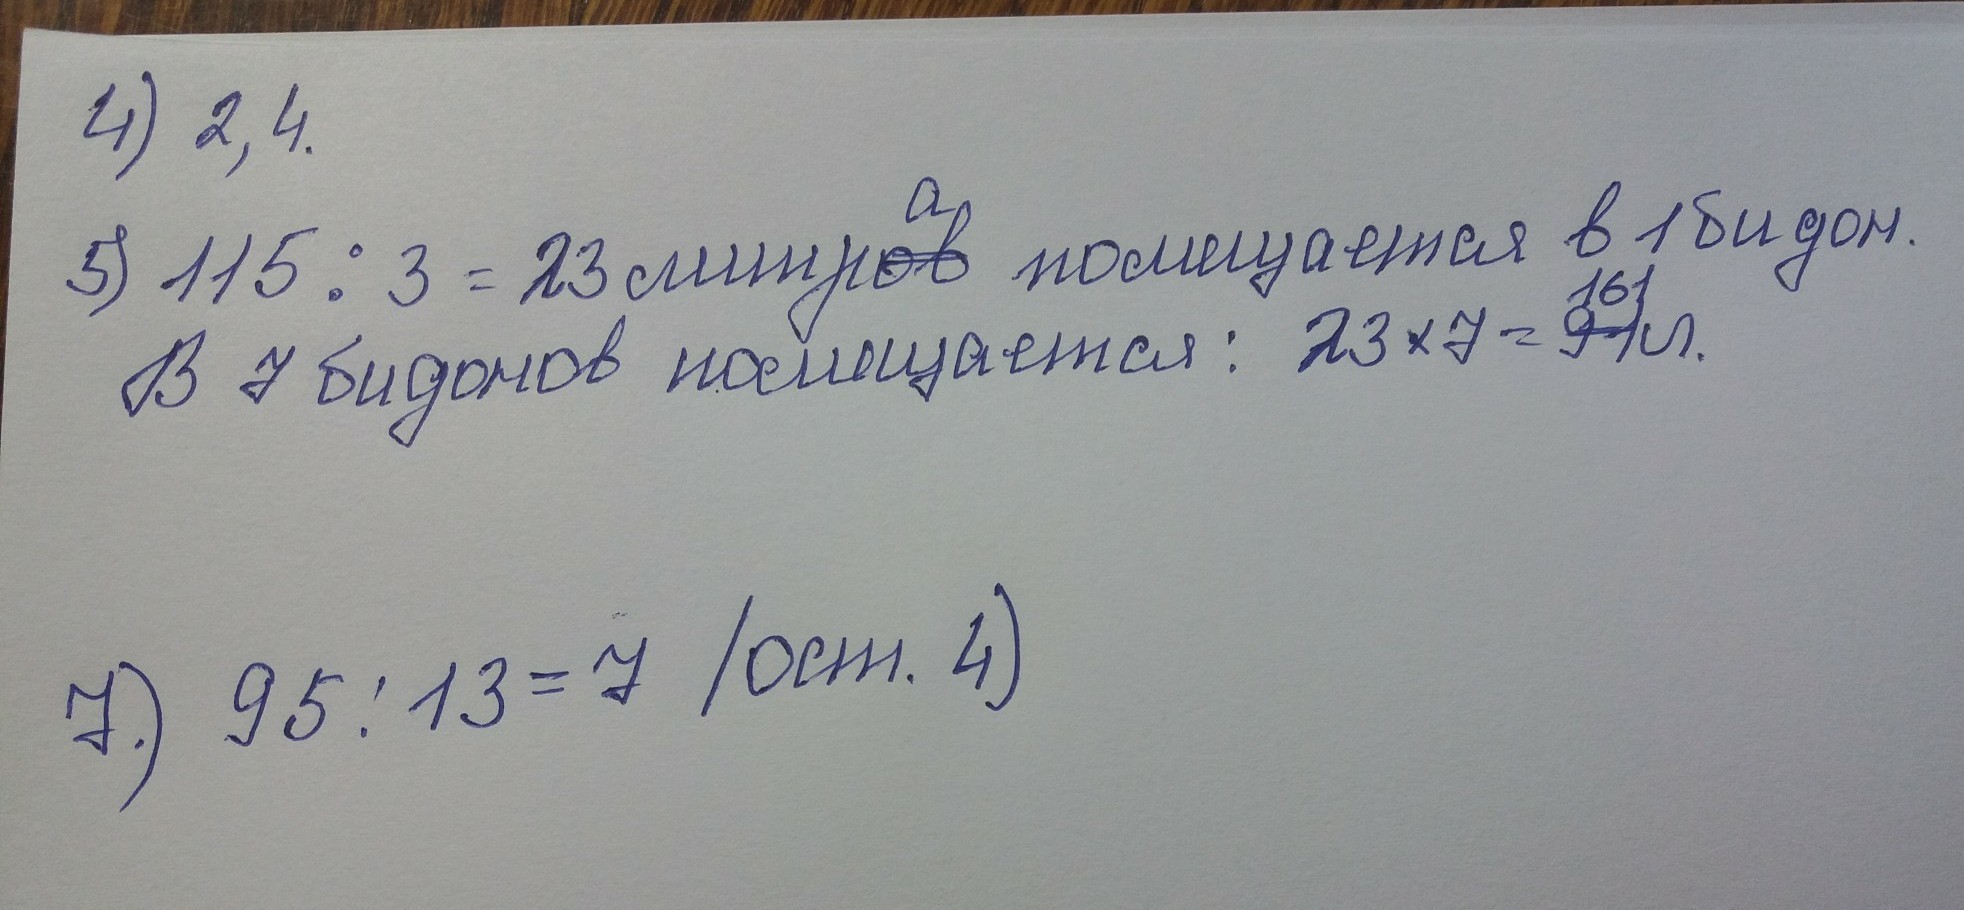 4) 2, 4.
5) 115 : 3 = 23 литра помещается в 1 бидон.
В 7 бидонов помещается: 23 × 7 = 161 л.
7.) 95 : 13 = 7 /ост. 4)